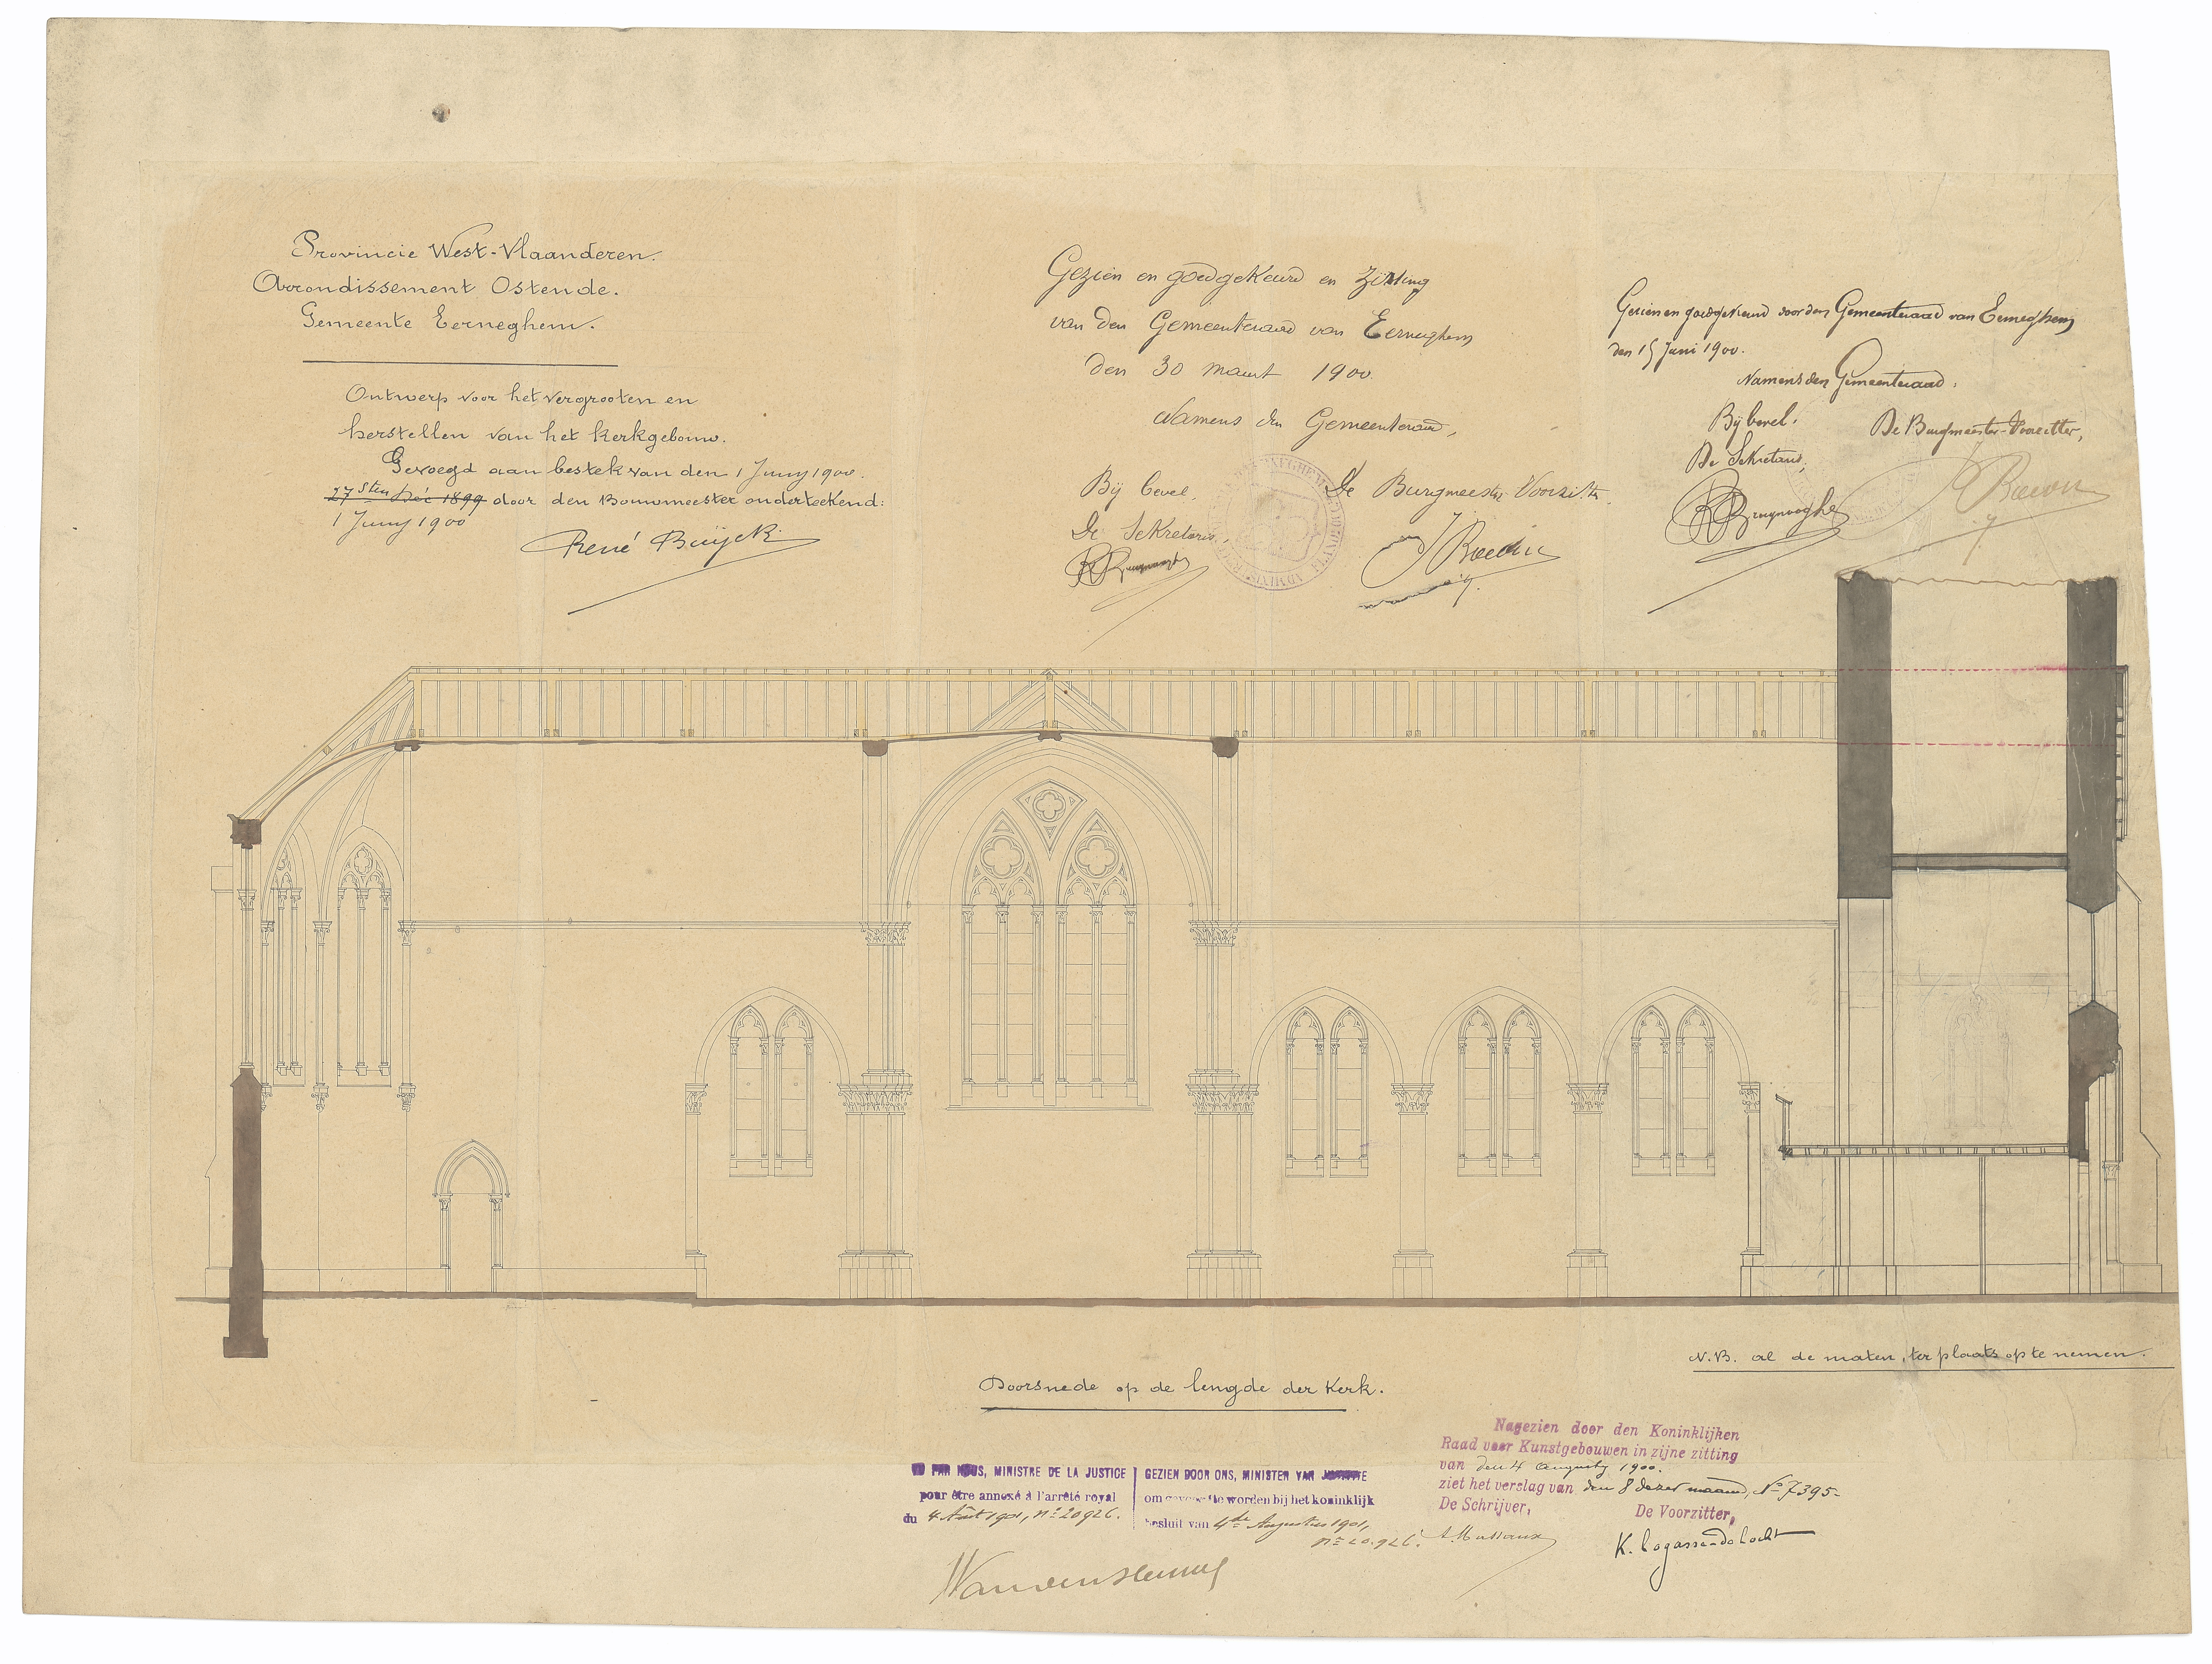 Provincie West-Vlaanderen.
Arrondissement Ostende.
Gemeente Eerneghem.
Ontwerp voor het vergrooten en
herstellen van het kerkgebouw.
Gevoegd aan bestek van den 1 Juny 1900.
27sten Dec 1899 door den Bouwmeester onderteekend:
1 Juny 1900
René Buyck
Gezien en goedgekeurd en zitting
van den Gemeenteraad van Eerneghem
den 30 maart 1900.
Namens den Gemeenteraad,
Bij bevel,
De Sekretaris,
De Burgmeester Voorzitter.
Gezien en goedgekeurd door den Gemeenteraad van Eerneghem
den 15 Juni 1900.
Namens den Gemeenteraad:
Bij bevel.
De Sekretaris,
De Burgmeester-Voorzitter,
N.B. al de maten, ter plaats op te nemen.
Doorsnede op de lengde der Kerk.
VU PAR NOUS, MINISTRE DE LA JUSTICE
pour être annexé à l'arrêté royal
du 4 Août 1901, n° 20926.
GEZIEN DOOR ONS, MINISTER VAN JUSTITIE
om gevoegd te worden bij het koninklijk
besluit van 4de Augustus 1901,
n° 20.926.
Nagezien door den Koninklijken
Raad voor Kunstgebouwen in zijne zitting
van den 4 augusty 1900.
ziet het verslag van den 8 dezer maand, N° 7395.
De Schrijver,
De Voorzitter,